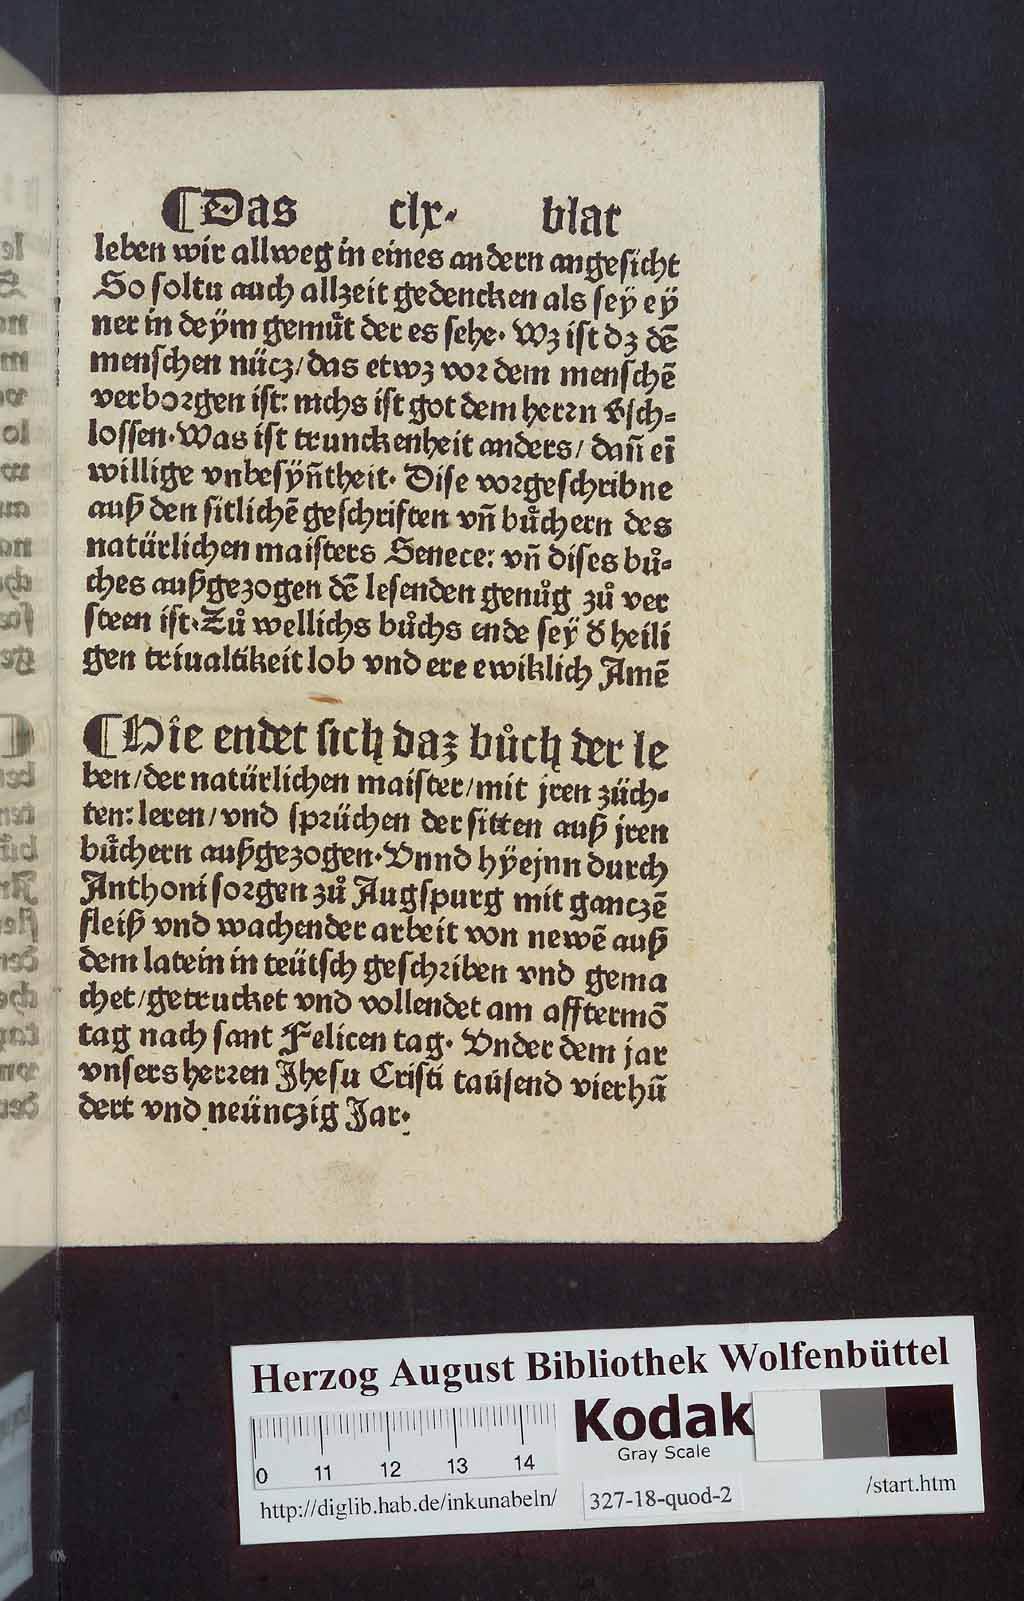 ¶ Das clx. blat
leben wir allweg in eines andern angesicht
So soltu auch allzeit gedencken als seÿ eÿ
ner in deÿm gemuͤt der es sehe. Wz ist dz dē
menschen nücz/das etwz vor dem menschē
verborgen ist: nichs ist got dem herrn v̄sch⸗
lossen. Was ist trunckenheit anders/ dañ eī
willige vnbesÿñtheit. Dise vorgeschribne
auß den sitlichē geschriften vñ buͤchern des
natürlichen maisters Senece: vñ dises buͦ⸗
ches außgezogen dē lesenden genuͦg zuͦ ver
steen ist. Zuͦ wellichs buͦchs ende seÿ d̄ heili
gen triualtikeit lob vnd ere ewiklich Amē
¶ Hie endet sich daz buͦch der le
ben/der natürlichen maister/mit jren züch⸗
ten: leren/vnd sprüchen der sitten auß jren
buͤchern außgezogen. Vnnd hÿejnn durch
Anthoni sorgen zuͦ Augspurg mit ganczē
fleiß vnd wachender arbeit von newē auß
dem latein in teütsch geschriben vnd gema
chet/getrucket vnd vollendet am afftermō
tag nach sant Felicen tag. Vnder dem jar
vnsers herren Jhesu Cristi tausend vierhū
dert vnd neünczig Jar.
Herzog August Bibliothek Wolfenbüttel
Kodak
Gray Scale
0 11 12 13 14
http://diglib.hab.de/inkunabeln/ 327-18-quod-2 /start.htm